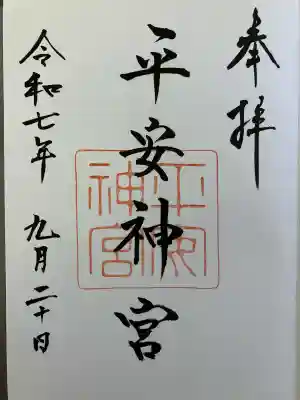 奉拝
平安神宮
平安神宮
令和七年 九月二十日